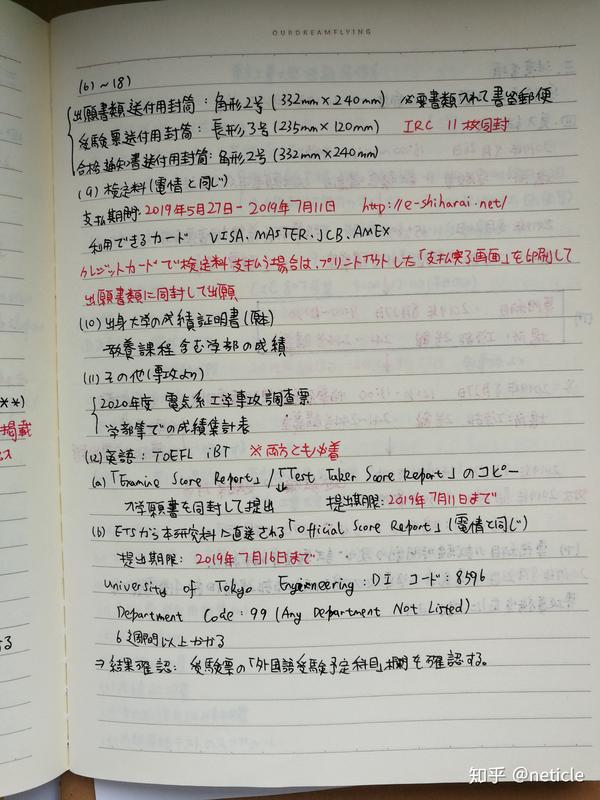 OURDREAMFLYING
(6)~(8)
出願書類送付用封筒：角形2号(332mm×240mm) 必要書類入れて書留郵便
受験票送付用封筒：長形3号(235mm×120mm) IRC 11枚同封
合格通知書送付用封筒：角形2号(332mm×240mm)
(9) 検定料(電情と同じ)
支払期間：2019年5月27日-2019年7月11日 http://e-shiharai.net/
利用できるカード VISA、MASTER、JCB、AMEX
クレジットカードで検定料支払う場合は、プリントアウトした「支払完了画面」を印刷して
出願書類に同封して出願
(10) 出身大学の成績証明書(原本)
教養課程含む学部の成績
(11) その他(専攻より)
2020年度 電気系工学専攻調査票
学部等での成績集計表
(12) 英語：TOEFL iBT ※両方とも必着
(a)「Examine Score Report」/「Test Taker Score Report」のコピー
↓
入学願書を同封して提出 提出期限：2019年7月11日まで
(b) ETSから本研究科に直送される「Official Score Report」(電情と同じ)
提出期限：2019年7月16日まで
University of Tokyo Engineering：DI コード：8596
Department Code：99 (Any Department Not Listed)
6週間以上かかる
⇒結果確認：受験票の「外国語受験予定科目」欄を確認する。
**)
掲載
知乎 @neticle